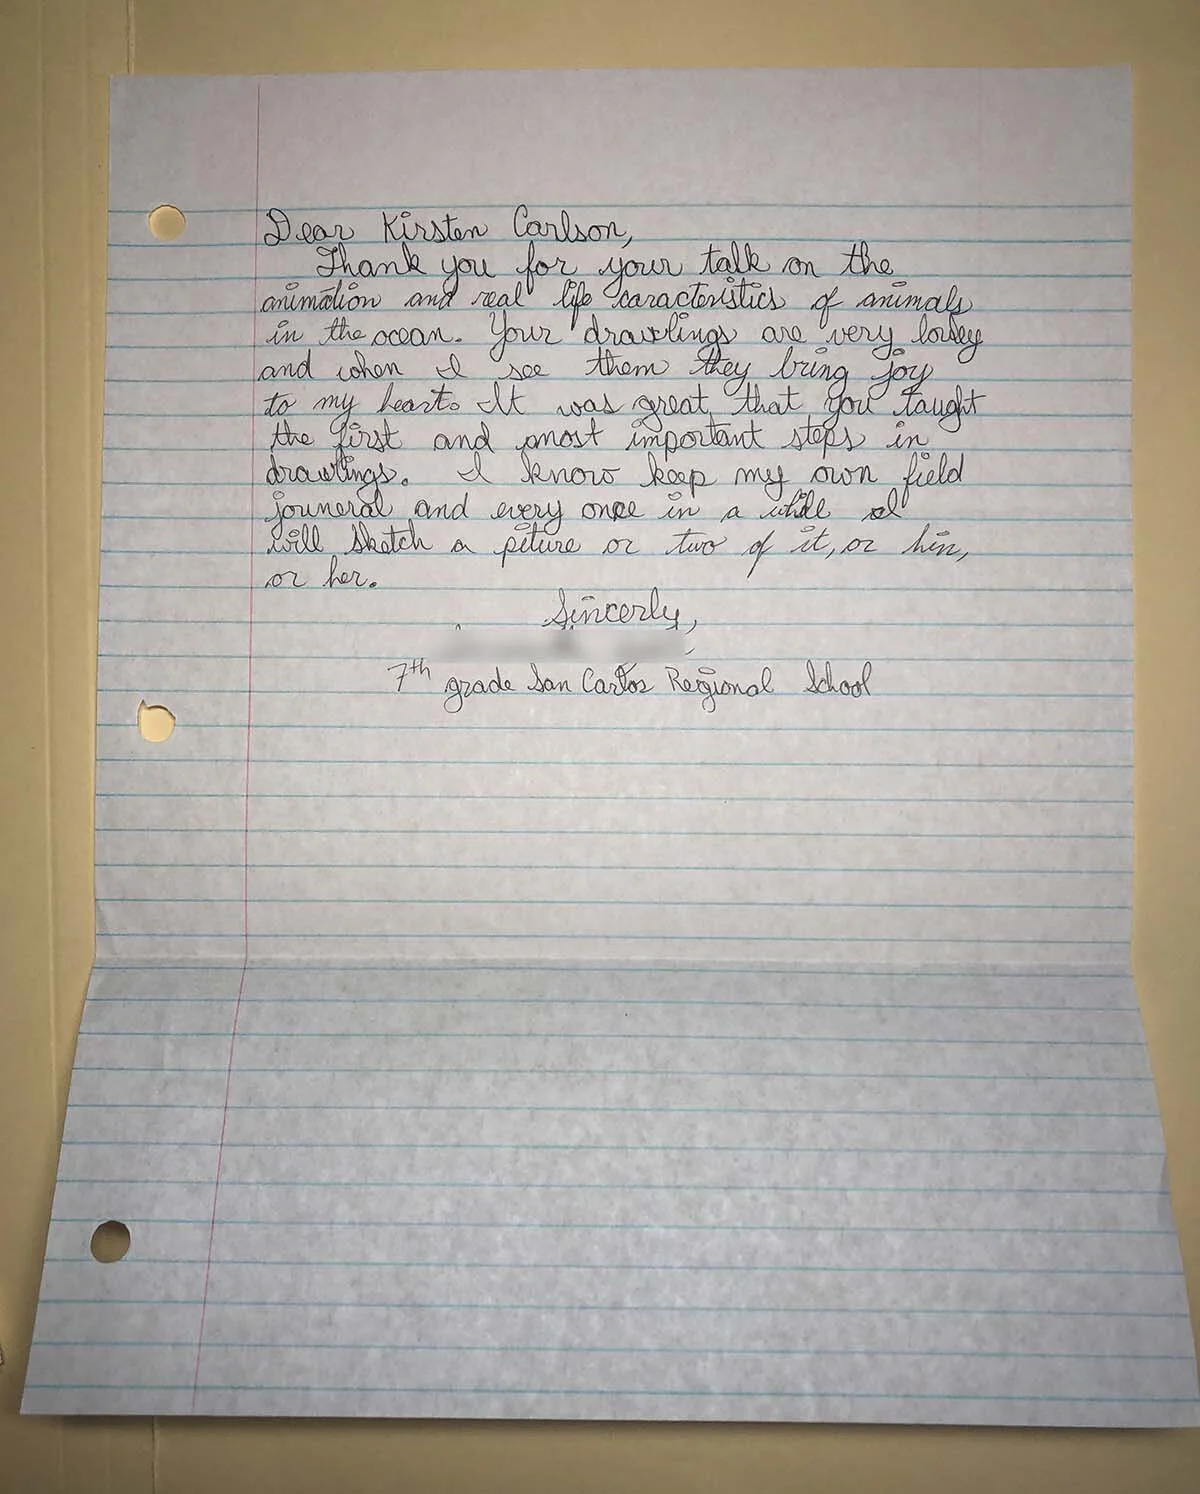 Dear Kirsten Carlson,
Thank you for your talk on the
animation and real life caracteristics of animals
in the ocean. Your drawlings are very lovley
and when I see them they bring joy
to my heart. It was great that you taught
the first and most important steps in
drawlings. I know keep my own field
jouneral and every once in a while I
will sketch a piture or two of it, or him,
or her.
Sincerly,
7th grade San Carlos Regional School